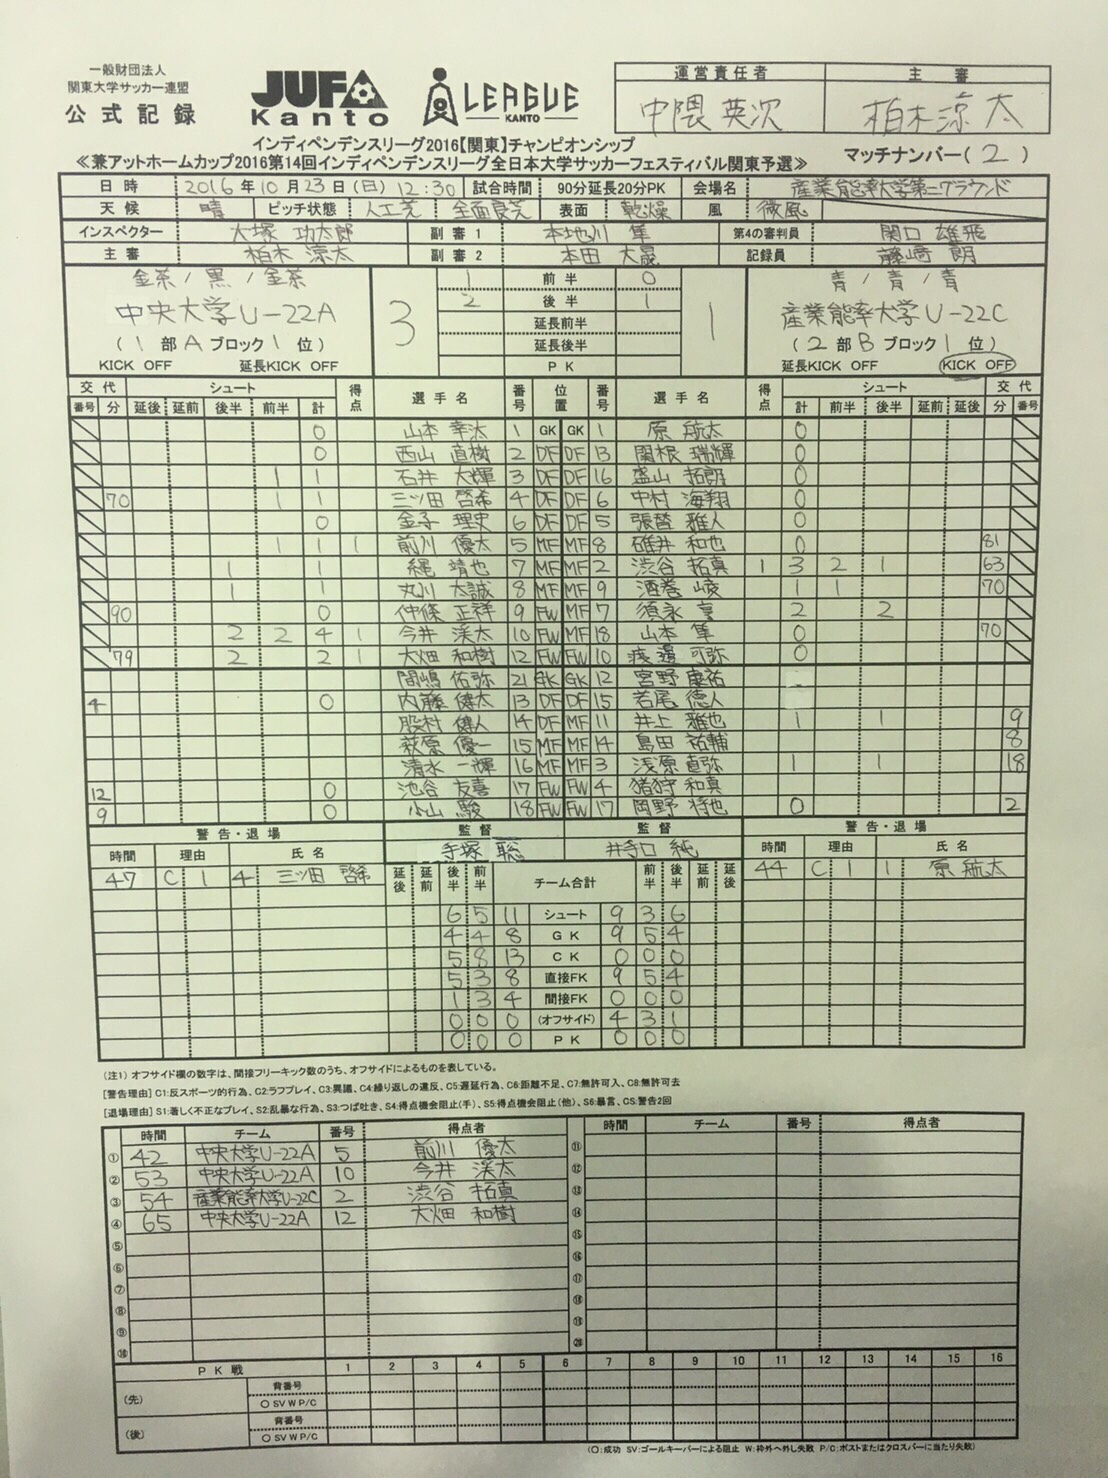 一般財団法人
関東大学サッカー連盟
公式記録
JUFA Kanto
i LEAGUE KANTO
運営責任者 主審
中隈 英次 柏木涼太
インディペンデンスリーグ2016【関東】チャンピオンシップ
≪兼アットホームカップ2016第14回インディペンデンスリーグ全日本大学サッカーフェスティバル関東予選≫ マッチナンバー( 2 )
日時 2016年10月23日(日) 12:30 試合時間 90分延長20分PK 会場名 産業能率大学第二グラウンド
天候 晴 ピッチ状態 人工芝 全面良芝 表面 乾燥 風 微風
インスペクター 大塚 功太郎 副審1 本地川 隼 第4の審判員 関口 雄飛
主審 柏木 涼太 副審2 本田 大晟 記録員 藤崎 朗
金茶/黒/金茶 3 1 前半 0 1 青/青/青
中央大学U-22A 2 後半 1 産業能率大学U-22C
延長前半
(1部Aブロック1位) 延長後半 (2部Bブロック1位)
KICK OFF 延長KICK OFF PK 延長KICK OFF KICK OFF
交代 シュート 得点 選手名 番号 位置 番号 選手名 得点 シュート 交代
番号 分 延後 延前 後半 前半 計 計 前半 後半 延前 延後 分 番号
0 山本 幸汰 1 GK GK 1 原 航太 0
0 西山 直樹 2 DF DF 13 関根 瑞輝 0
1 1 石井 大輝 3 DF DF 16 盛山 拓朗 0
70 1 1 三ツ田 啓希 4 DF DF 6 中村 海翔 0
0 金子 理史 6 DF DF 5 張替 雅人 0
1 1 1 前川 優太 5 MF MF 8 碓井 和也 0 81
1 1 縄 靖也 7 MF MF 2 渋谷 拓真 1 3 2 1 63
1 1 丸川 太誠 8 MF MF 9 酒巻 崚 1 1 70
90 0 仲條 正祥 9 FW MF 7 須永 享 2 2
2 2 4 1 今井 渓太 10 FW MF 18 山本 隼 0 70
79 2 2 1 大畑 和樹 12 FW FW 10 渡邉 可弥 0
間嶋 佑弥 21 GK GK 12 宮野 康祐
4 0 内藤 健太 13 DF DF 15 若尾 徳人
股村 健人 14 DF MF 11 井上 雅也 1 1 9
萩原 優一 15 MF MF 14 島田 祐輔 8
清水 一輝 16 MF MF 3 浅原 直弥 1 1 18
12 0 池谷 友喜 17 FW FW 4 猪狩 和真
9 0 小山 駿 18 FW FW 17 岡野 将也 0 2
警告・退場 監督 監督 警告・退場
時間 理由 氏名 手塚 聡 井手口 純 時間 理由 氏名
47 C 1 4 三ツ田 啓希 延後 延前 後半 前半 チーム合計 前半 後半 延前 延後 44 C 1 1 原 航太
6 5 11 シュート 9 3 6
4 4 8 GK 9 5 4
5 8 13 CK 0 0 0
5 3 8 直接FK 9 5 4
1 3 4 間接FK 0 0 0
0 0 0 (オフサイド) 4 3 1
0 0 0 PK 0 0 0
(注1) オフサイド欄の数字は、間接フリーキック数のうち、オフサイドによるものを表している。
[警告理由] C1:反スポーツ的行為、C2:ラフプレイ、C3:異議、C4:繰り返しの違反、C5:遅延行為、C6:距離不足、C7:無許可入、C8:無許可去
[退場理由] S1:著しく不正なプレイ、S2:乱暴な行為、S3:つば吐き、S4:得点機会阻止(手)、S5:得点機会阻止(他)、S6:暴言、CS:警告2回
時間 チーム 番号 得点者 時間 チーム 番号 得点者
① 42 中央大学U-22A 5 前川 優太 ⑪
② 53 中央大学U-22A 10 今井 渓太 ⑫
③ 54 産業能率大学U-22C 2 渋谷 拓真 ⑬
④ 65 中央大学U-22A 12 大畑 和樹 ⑭
⑤ ⑮
⑥ ⑯
⑦ ⑰
⑧ ⑱
⑨ ⑲
⑩ ⑳
PK戦 1 2 3 4 5 6 7 8 9 10 11 12 13 14 15 16
(先) 背番号
○ SV W P/C
(後) 背番号
○ SV W P/C
(○:成功 SV:ゴールキーパーによる阻止 W:枠外へ外し失敗 P/C:ポストまたはクロスバーに当たり失敗)